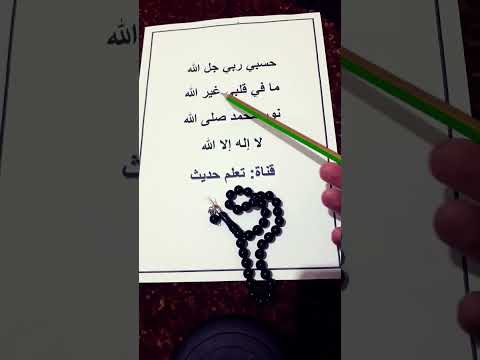 حسبي ربي جل الله
ما في قلبي غير الله
نور محمد صلى الله
لا إله إلا الله
قناة: تعلم حديث